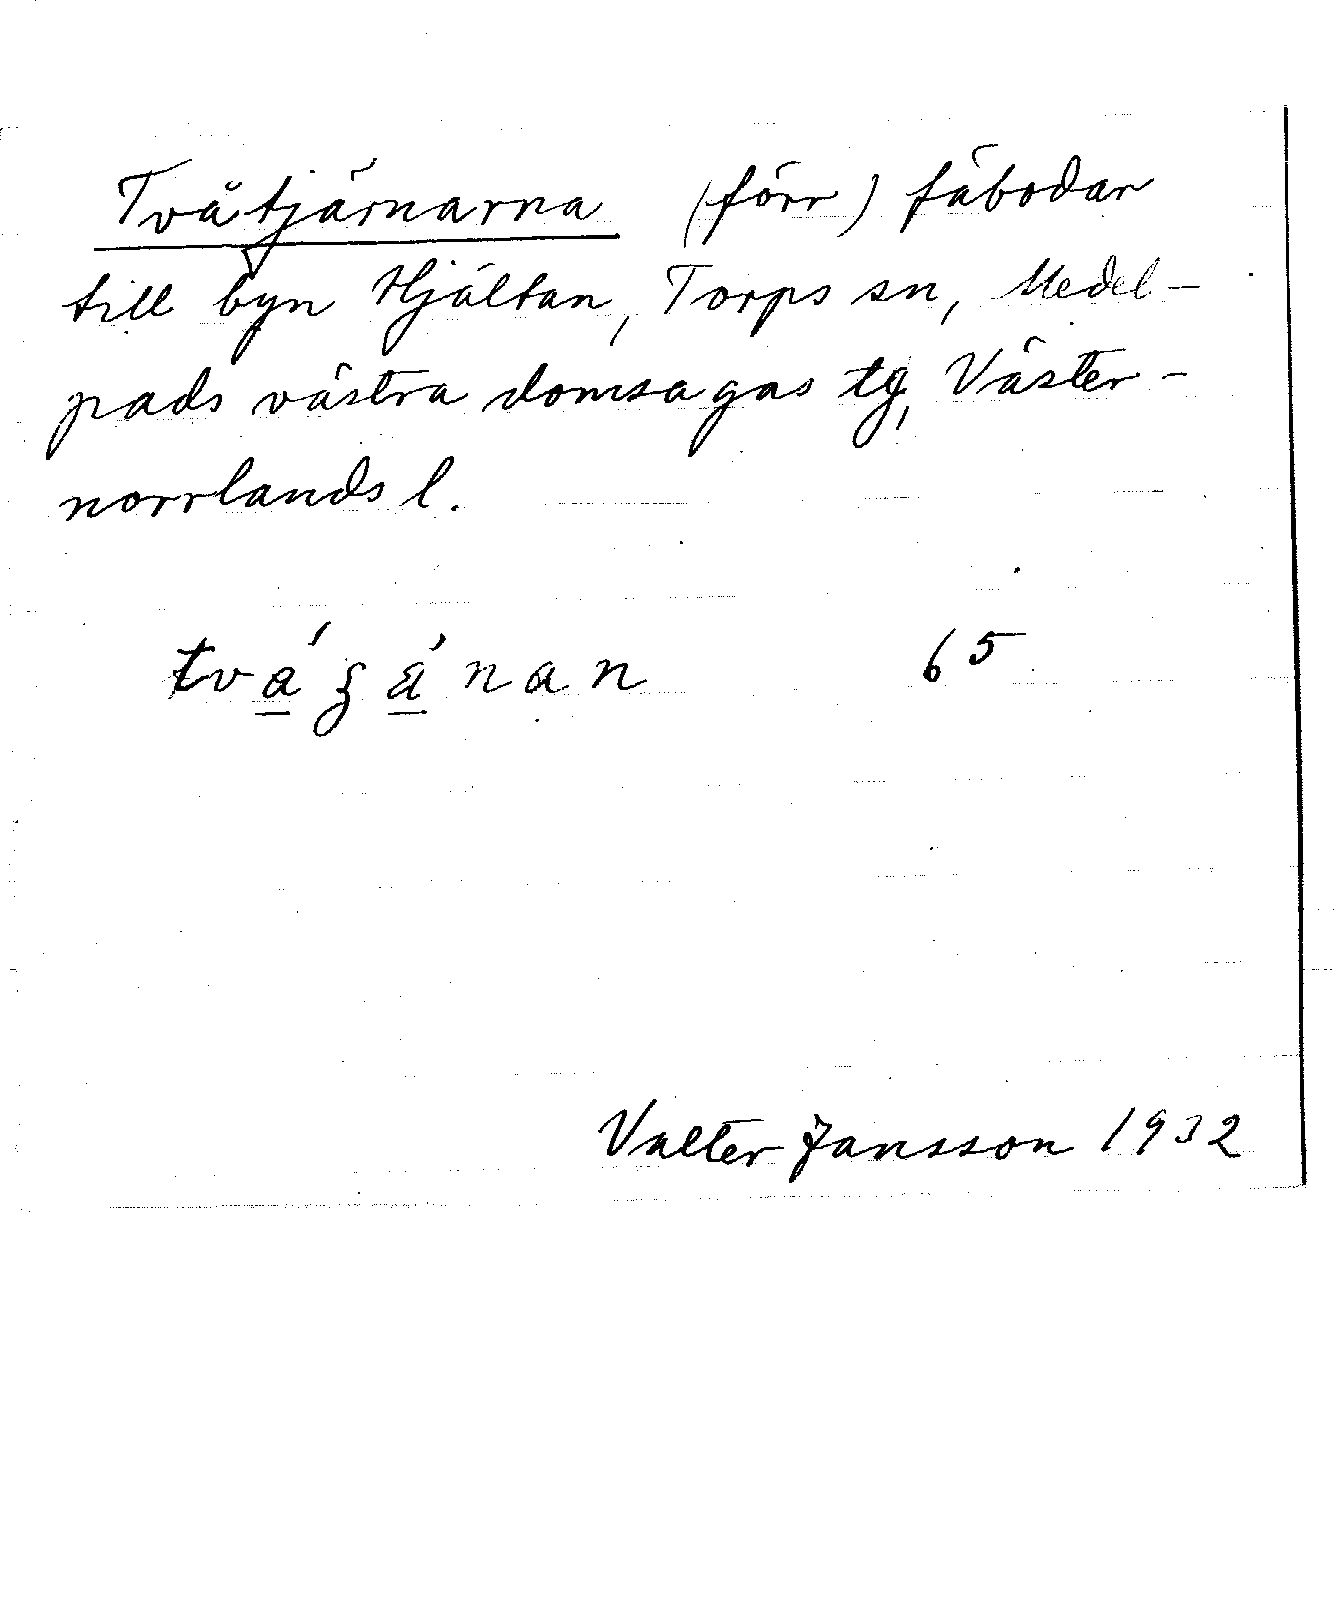 Tvåtjärnarna (förr) fäbodar
till byn Hjältan, Torps sn, Medel-
pads västra domsagas tg, Väster-
norrlands l.
65
Valter Jansson 1932